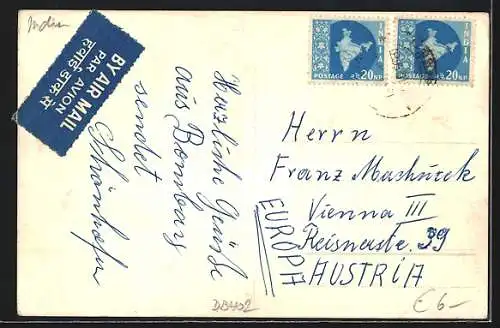 India
BY AIR MAIL
PAR AVION
हवाई डाक से
INDIA
POSTAGE 20 NP
INDIA
POSTAGE 20 NP
Herzliche Grüße
aus Bombay
sendet
Herrn
Franz
Vienna III
Reisnerstr. 39
EUROPA
AUSTRIA
€ 6-